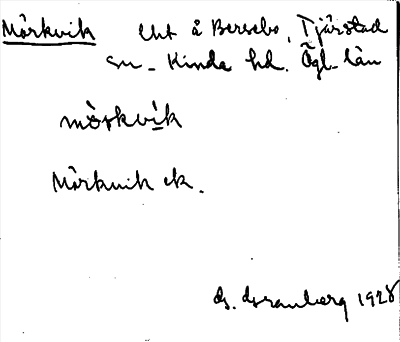 Mörkvik Lht å Bersebo, Tjärstad
sn. Kinda hd. Ögl. län
mö̀rkvík
Mörkvik ek.
G. Granberg 1928